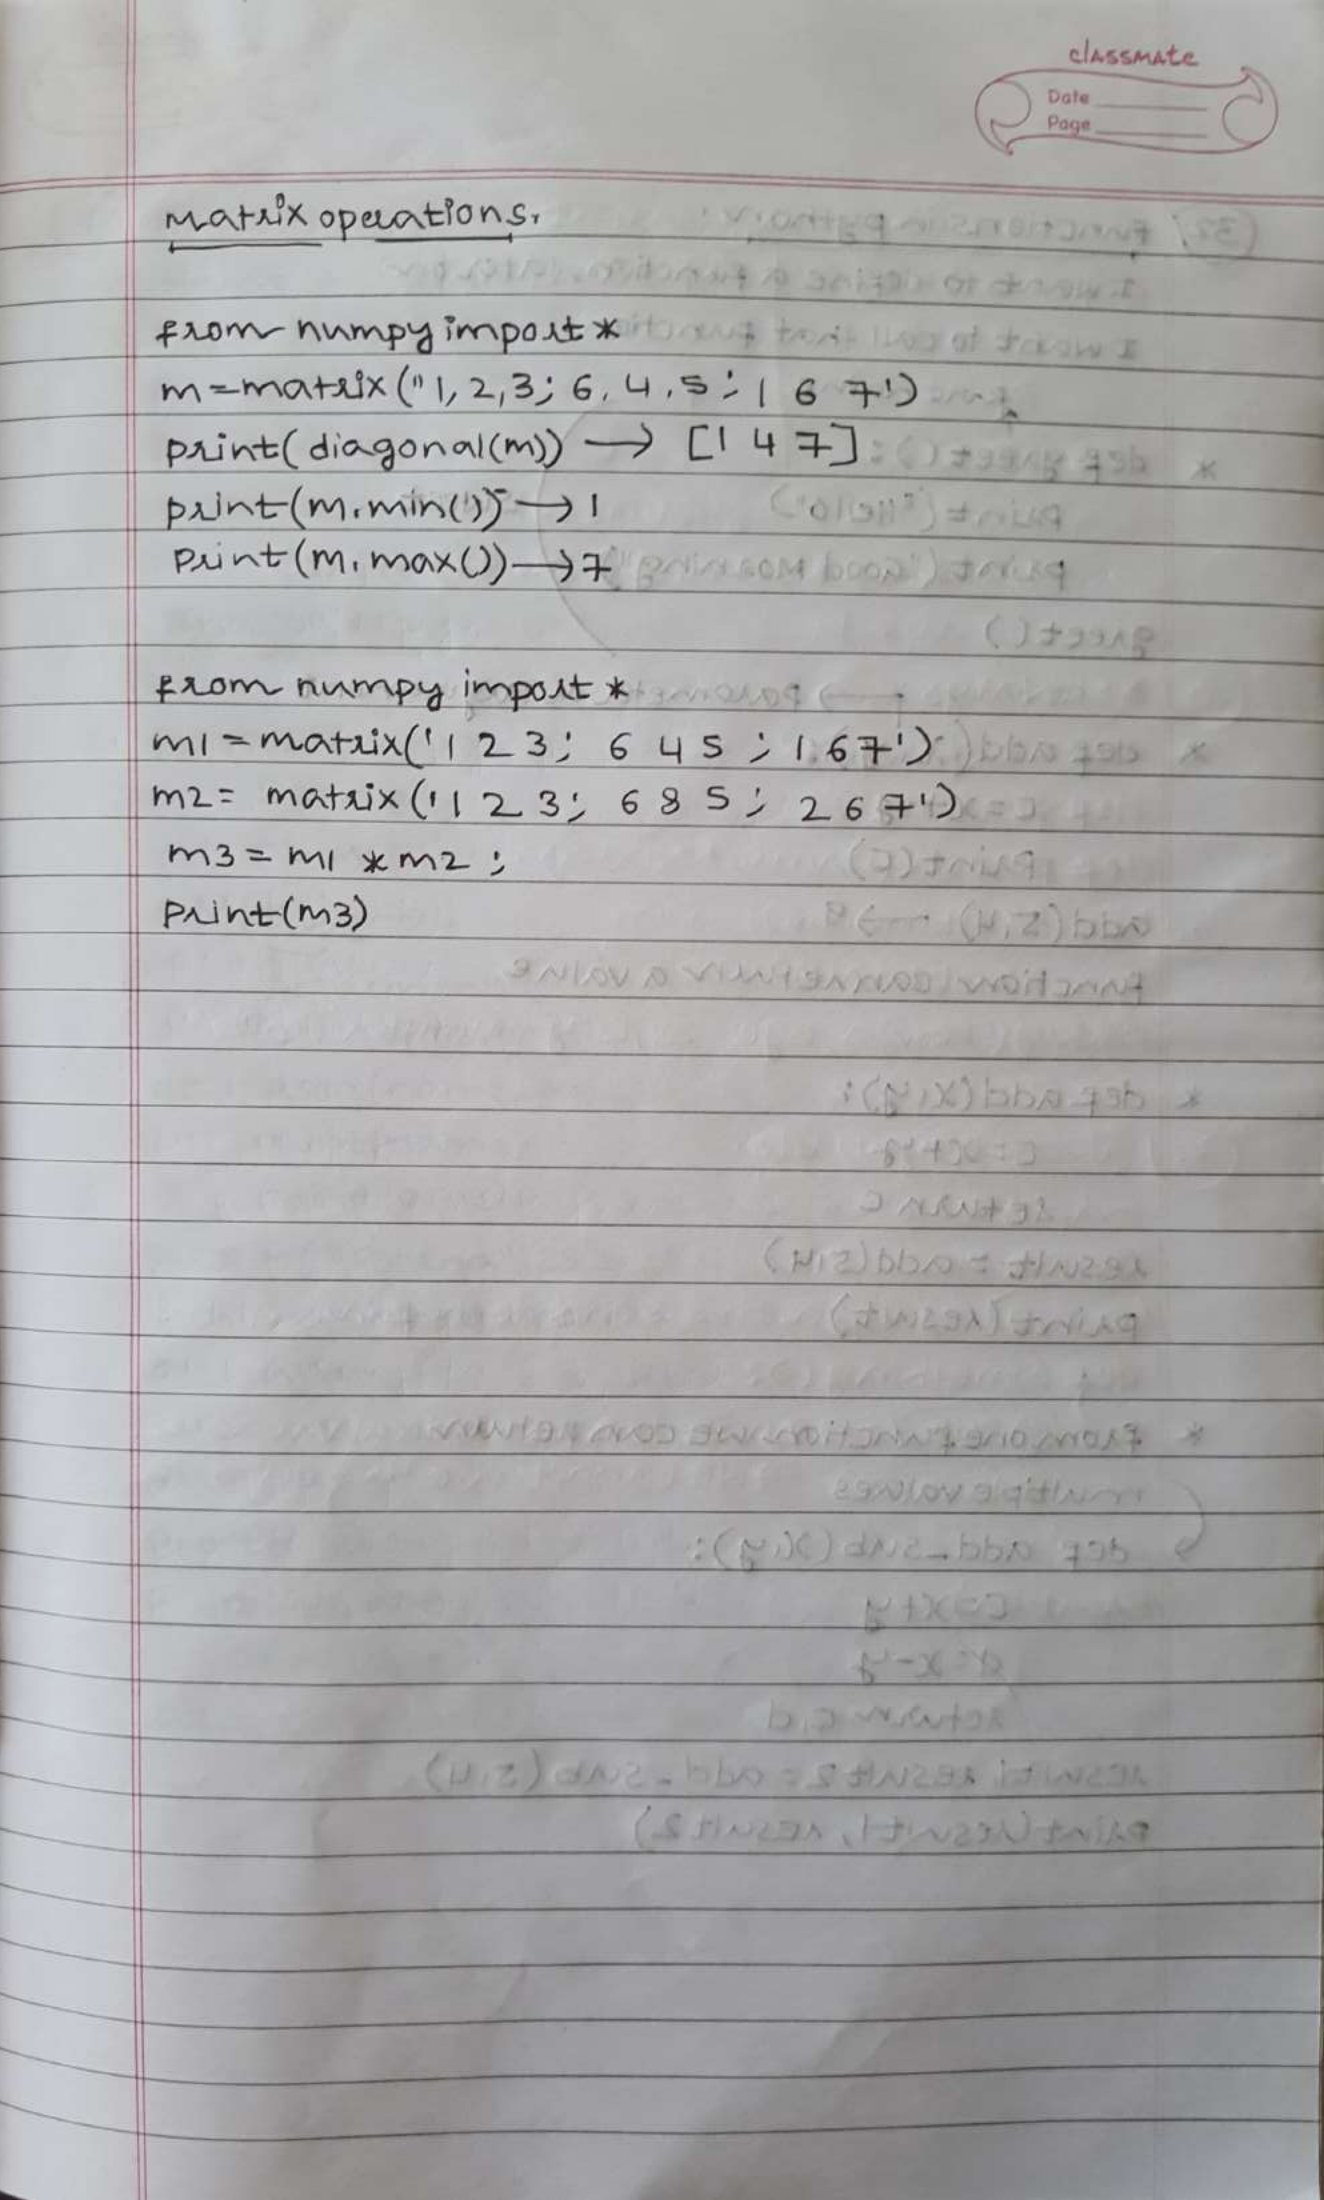 classmate
Date
Page
Matrix operations.
from numpy import *
m=matrix("1,2,3; 6,4,5; 1 6 7')
print(diagonal(m)) → [1 4 7]
print(m.min()) → 1
print(m.max()) → 7
from numpy import *
m1 = matrix('1 2 3; 6 4 5 ; 1 6 7')
m2 = matrix('1 2 3; 6 8 5; 2 6 7')
m3 = m1 * m2 ;
print(m3)